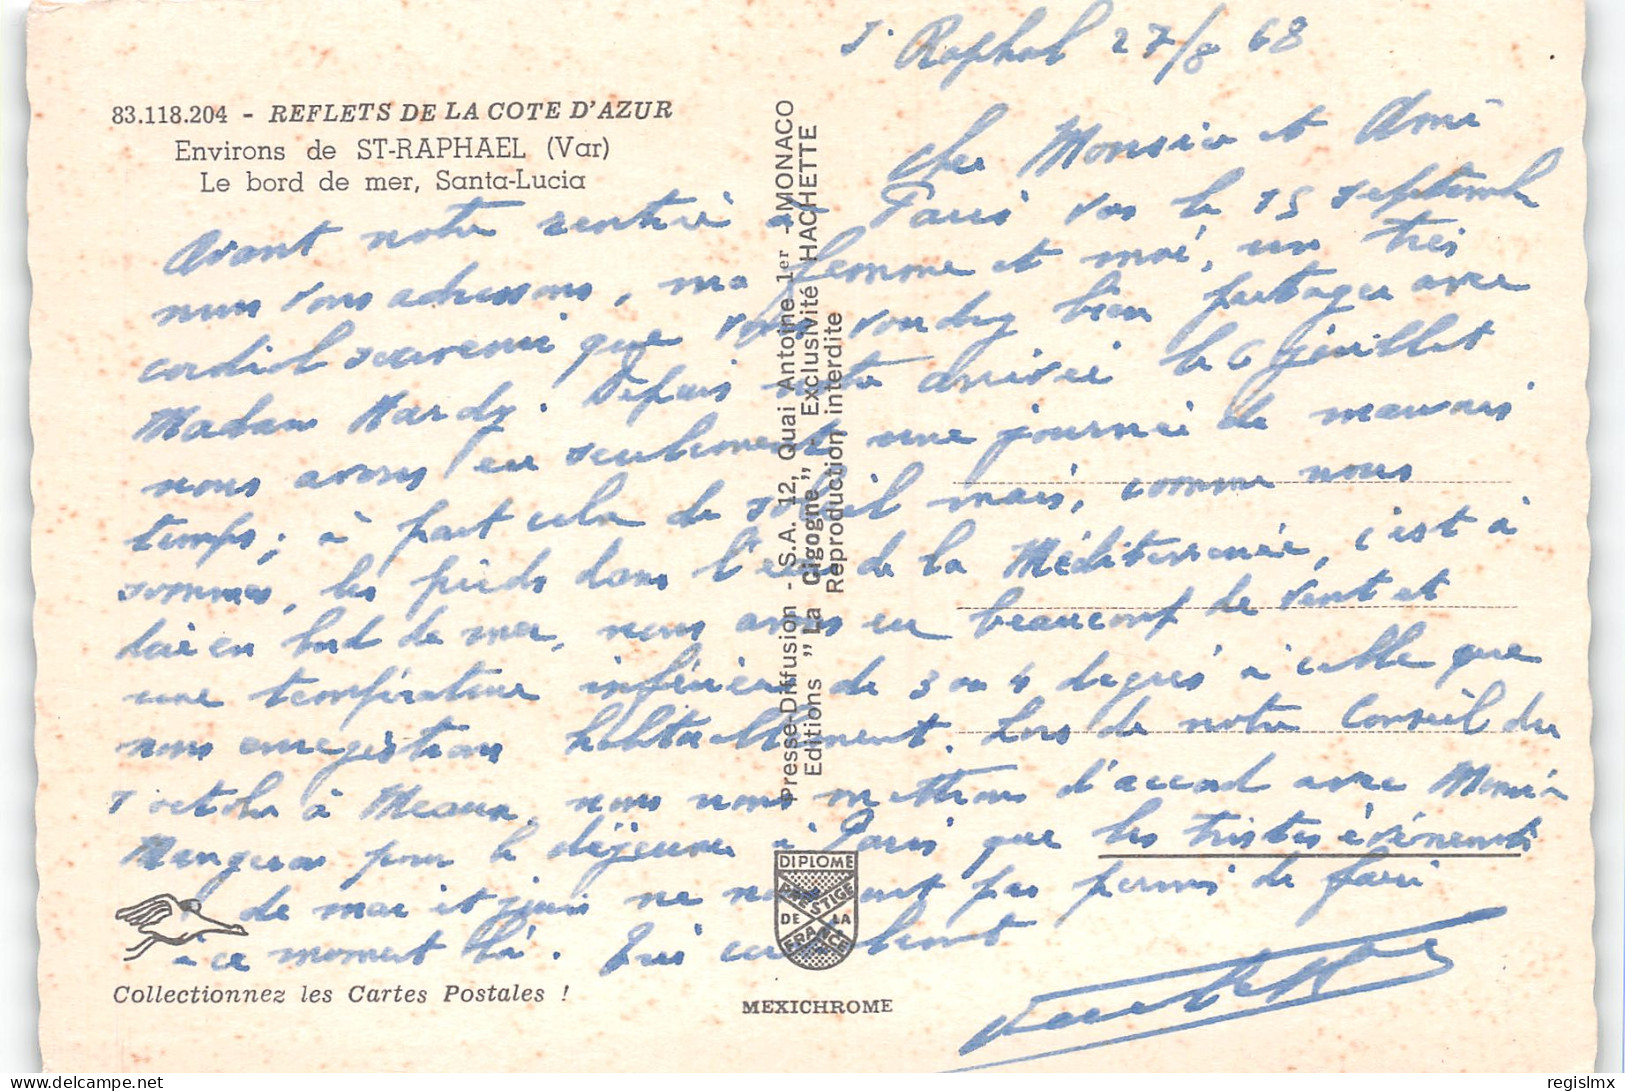 St Raphaël 27/8 68
83.118.204 - REFLETS DE LA COTE D'AZUR
Environs de ST-RAPHAEL (Var)
Le bord de mer, Santa-Lucia
Cher Monsieur et Ami
Avant notre rentrée à Paris vers le 15 septembre
nous vous adressons, ma femme et moi, un très
cordial souvenir que vous voudrez bien partager avec
Madame Hardy. Depuis notre arrivée le 6 juillet
nous avons eu seulement une journée de mauvais
temps; à part cela de soleil mais, comme nous
sommes, les pieds dans l'eau de la Méditerranée, c'est à
dire en bord de mer, nous avons eu beaucoup de vent et
une température inférieure de 3 ou 4 degrés à celle que
nous enregistrons habituellement. Lors de notre Conseil du
7 octobre à Meaux, nous nous mettrons d'accord avec Monsieur
pour le déjeuner à Paris que les tristes événements
de mai et juin ne nous ont pas permis de faire
à ce moment là. Très cordialement
Presse-Diffusion - S.A. 12, Quai Antoine 1er - MONACO
Editions "La Cigogne" - Exclusivité HACHETTE
Reproduction interdite
DIPLOME
PRESTIGE
DE LA
FRANCE
Collectionnez les Cartes Postales !
MEXICHROME
delcampe.net
regislmx